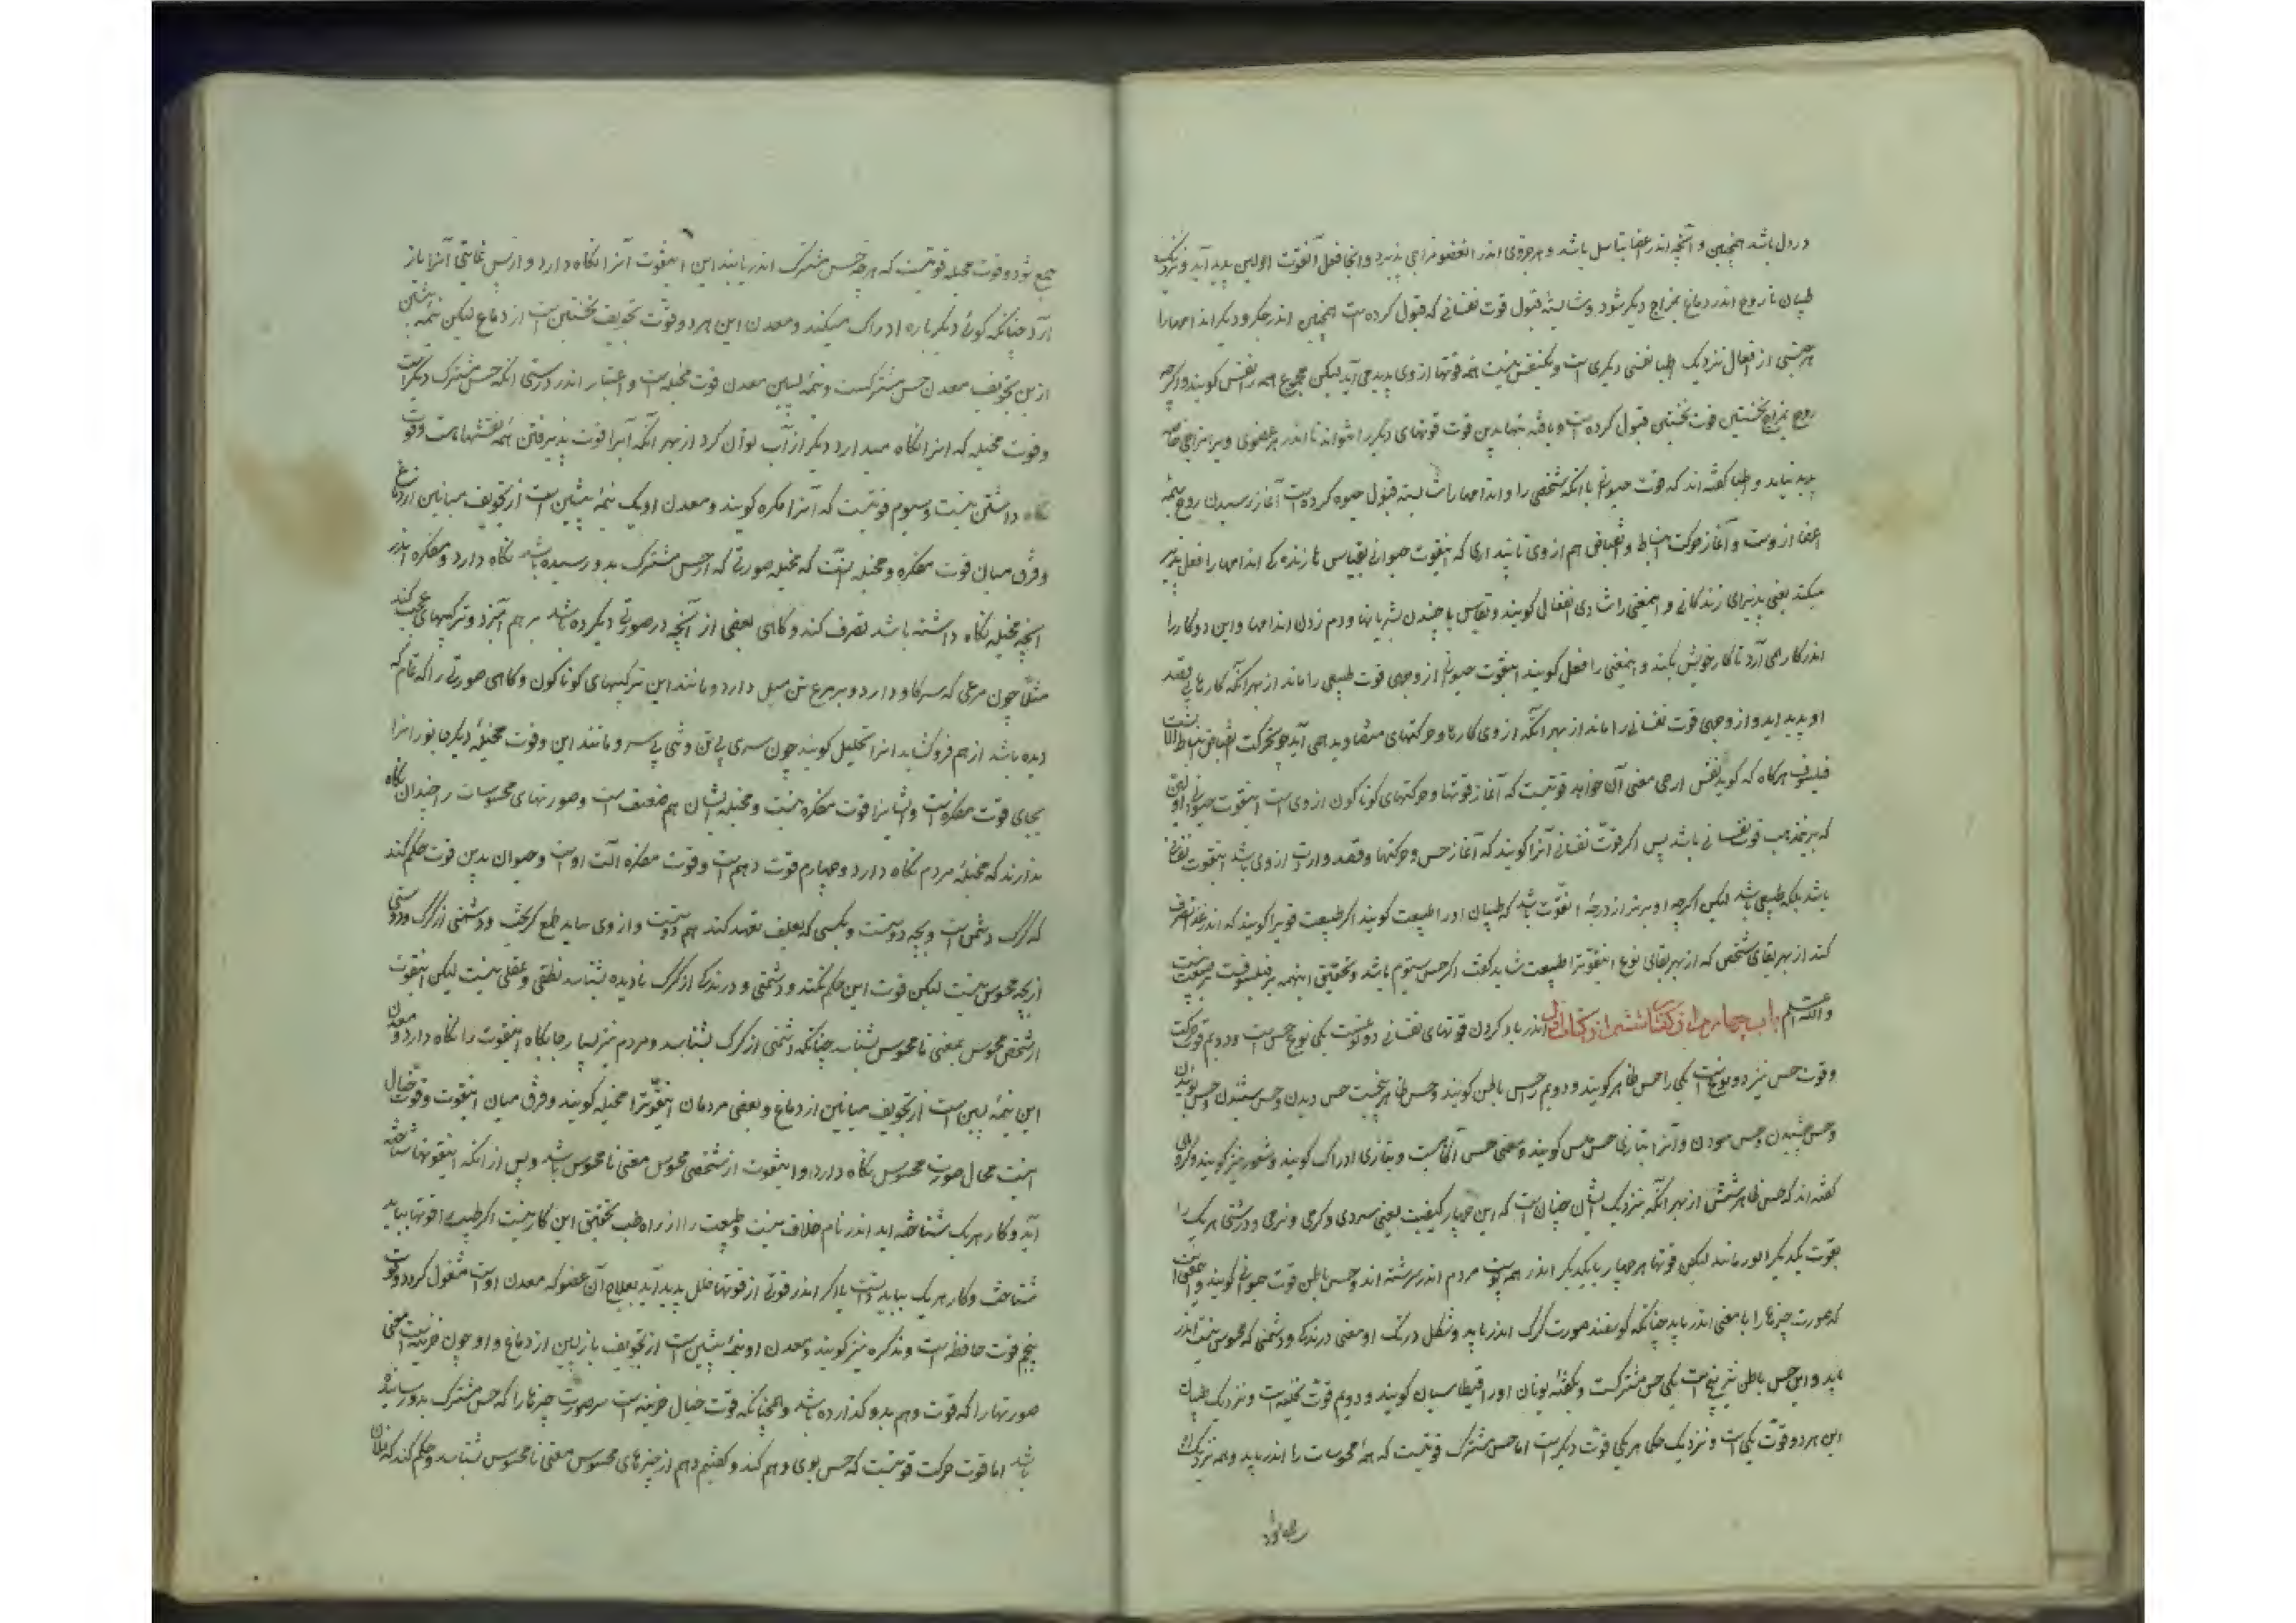 در دل باشد همچنین و آنچه اندر اعضا تناسل باشد و هر جزوی اندر العضو مزاجی پذیرد و آنجا فعل آنقوت اولین پدید آید و نزدیک
طبیبان تا روح اندر دماغ بمزاج دیگر شود و شایسته قبول قوت نفسانی که قبول کرده است همچنین اندر جگر و دیگر اندامها را
هر جنسی از افعال نزدیک اطبا نفسی دیگری است و یکنفس نیست همه قوتها از وی پدید می آید لیکن مجموع همه را نفس گویند و اگرچه
روح بمزاج نخستین قوت نخستین قبول کرده است و یافته تنها بدین قوت قوتهای دیگر را نتواند تا اندر هر عضوی ویرا مزاجی خاصه
پدید نیاید و اطبا گفته اند که قوت حیوانی با آنکه شخصی را و اندامها را شایسته قبول حیوة کرده است آغاز رسیدن روح بهمه
اعضا ازوست و آغاز حرکت انبساط و انقباض هم از وی تا پنداری که اینقوت حیوانی بقیاس با زنده کی اندامها را فعل پذیر
میکند یعنی پذیرای زندگانی و اینمعنی را شادی انفعالی گویند و بقیاس با جنبیدن شریانها و دم زدن اندامها و این دو کار را
اندر کار می آرد تا کار خویش بکند و اینمعنی را فعل گویند اینقوت حیوانی از وجهی قوت طبیعی را ماند از بهر آنکه کارها بی قصد
او پدید آید و از وجهی قوت نفسانی را ماند از بهر آنکه از وی کارها و حرکتهای متضاد پدید می آید چو حرکت انقباض و انبساط الا
فیلسوف هرگاه که گوید نفس ارضی معنی آن خواهد قوتیست که آغاز قوتها و حرکتهای گوناگون از وی است اینقوت حیوانی اولین
که بر مذهب قوت نفسانی باشد پس اگر قوت نفسانی آنرا گویند که آغاز حس و حرکتها و قصد و ارادت از وی باشد اینقوت نفسانی
باشد بلکه طبیعی باشد لیکن اگرچه او برتر از درجه اینقوت باشد که طبیبان او را طبیعت گویند اگر طبیعت قوتیرا گویند که اندر غذا تصرف
کند از بهر بقای شخص که از بهر بقای نوع اینقوترا طبیعت شاید گفت اگر حس سیوم باشد و تحقیق اینهمه بر فیلسوفست بر طبیب نیست
والله اعلم باب چهارم از گفتار ششم از کتاب اول اندر یاد کردن قوتهای نفسانی دو نوعست یکی نوع حس است و دویم قوت حرکت
و قوت حس نیز دو نوعست یکی را حس ظاهر گویند و دویم را حس باطن گویند و حس ظاهر پنجست حس دیدن و حس شنیدن و حس بوئیدن
و حس چشیدن و حس سودن و آنرا بتازی حس لمس گویند و معنی حس آگاهیست و بتازی ادراک گویند و شعور نیز گویند و گروهی
گفته اند که حس ظاهر ششست از بهر آنکه نزدیک ایشان چنان است که این چهار کیفیت یعنی سردی و گرمی و نرمی و درشتی هر یک را
بقوت یکدیگر اندر مانند لیکن قوتها هر چهار با یکدیگر اندر همه پوست مردم اندر سرشته اند و حس باطن قوت حیوانی گویند و معنی آنست
که صورت چیزها را با معنی اندر یابد چنانکه گوسفند صورت گرگ اندر یابد و شکل و رنگ او و معنی درندگی و دشمنی که محسوس نیست اندر
یابد و این حس باطن نیز پنج است یکی حس مشترکست و بلغة یونان او را فنطاسیان گویند و دویم قوت مخیله است و نزدیک طبیبان
این هر دو قوت یکی است و نزدیک حکما هر یکی قوت دیگر است اما حس مشترک قوتیست که همه محسوسات را اندر یابد و همه نزدیک او
جمع شود و قوت مخیله قوتیست که هرچه حس مشترک اندر یابند این اینقوت آنرا نگاه دارد و از پس غایبی آنرا باز
آرد چنانکه گوئی دیگر باره ادراک میکند و معدن این هر دو قوت تجویف نخستین است از دماغ لیکن نیمه پیشین
ازین تجویف معدن حس مشترکست و نیمه پسین معدن قوت مخیله است و اعتبار اندر درستی آنکه حس مشترک دیگر است
و قوت مخیله که آنرا نگاه میدارد دیگر از آب توان کرد از بهر آنکه آبرا قوت پذیرفتن همه نقشها هست و قوت
نگاه داشتن نیست و سیوم قوتیست که آنرا مفکره گویند و معدن او یک نیمه پیشین است از تجویف میانین از دماغ
و فرق میان قوت مفکره و مخیله آنست که مخیله صورتی که از حس مشترک بدو رسیده باشد نگاه دارد و مفکره اندر
آنچه مخیله نگاه داشته باشد تصرف کند و گاهی بعضی از آنچه در صورتی دیگر دیده باشد بر هم آمیزد و ترکیبهای عجب کند
مثلا چون مرغی که سر گاو دارد و بر مرغ تن میل دارد و مانند این ترکیبهای گوناگون و گاهی صورتی را که تمام که
دیده باشد از هم فروگشاید آنرا تحلیل گویند چون سری بی تن و تنی بی سر و مانند این و قوت مخیله دیگر جانور آنرا
بجای قوت مفکره است و ایشانرا قوت مفکره نیست و مخیله ایشان هم ضعیف است و صورتهای محسوسات را چندان نگاه
ندارند که مخیله مردم نگاه دارد و چهارم قوت وهم است و قوت مفکره آلت اوست و حیوان بدین قوت حکم کند
که گرگ دشمن است و بچه دوست و بکسی که بعلف تعهد کند هم دوست و از وی نباید طمع گریخت و دشمنی از گرگ و دوستی
از بچه محسوس نیست لیکن قوت این حکم بکند و دشمنی و درندگی از گرگ نادیده بشناسد نطقی و عقلی نیست لیکن اینقوت
از شخص محسوس بمعنی نامحسوس بشناسد چنانکه دشمنی از گرگ بشناسد و مردم نیز بسیار جایگاه اینقوت را نگاه دارد و معدن
این نیمه پسین است از تجویف میانین از دماغ و بعضی مردمان اینقوترا مخیله گویند و فرق میان اینقوت و قوت خیال
آنست محال صورت محسوس نگاه دارد او اینقوت از شخصی محسوس معنی نامحسوس باشد و پس از آنکه اینقوتها شناخته
آید و کار هر یک شناخته آید اندر نام خلاف نیست و طبیعت را از راه طب تحقیق این کار نیست اگر طبیب را قوتها بباید
شناخت و کار هر یک بباید دانست تا اگر اندر قوتی از قوتها خلل پدید آید بعلاج آن عضو که معدن اوست مشغول گردد و قوت
پنجم قوت حافظه است و مذکره نیز گویند و معدن او نیمه پیشین است از تجویف بازپسین از دماغ و او چون خزینه است معنی
صورتها را که قوت وهم بدو گذارده باشد و همچنانکه قوت خیال خزینه است مر صورت چیزها را که حس مشترک بدو رسانیده
باشد اما قوت حرکت قوتیست که حس بوی وهم کند و گفتیم وهم از چیزهای محسوس معنی نامحسوس شناسد و حکم کند که فلان